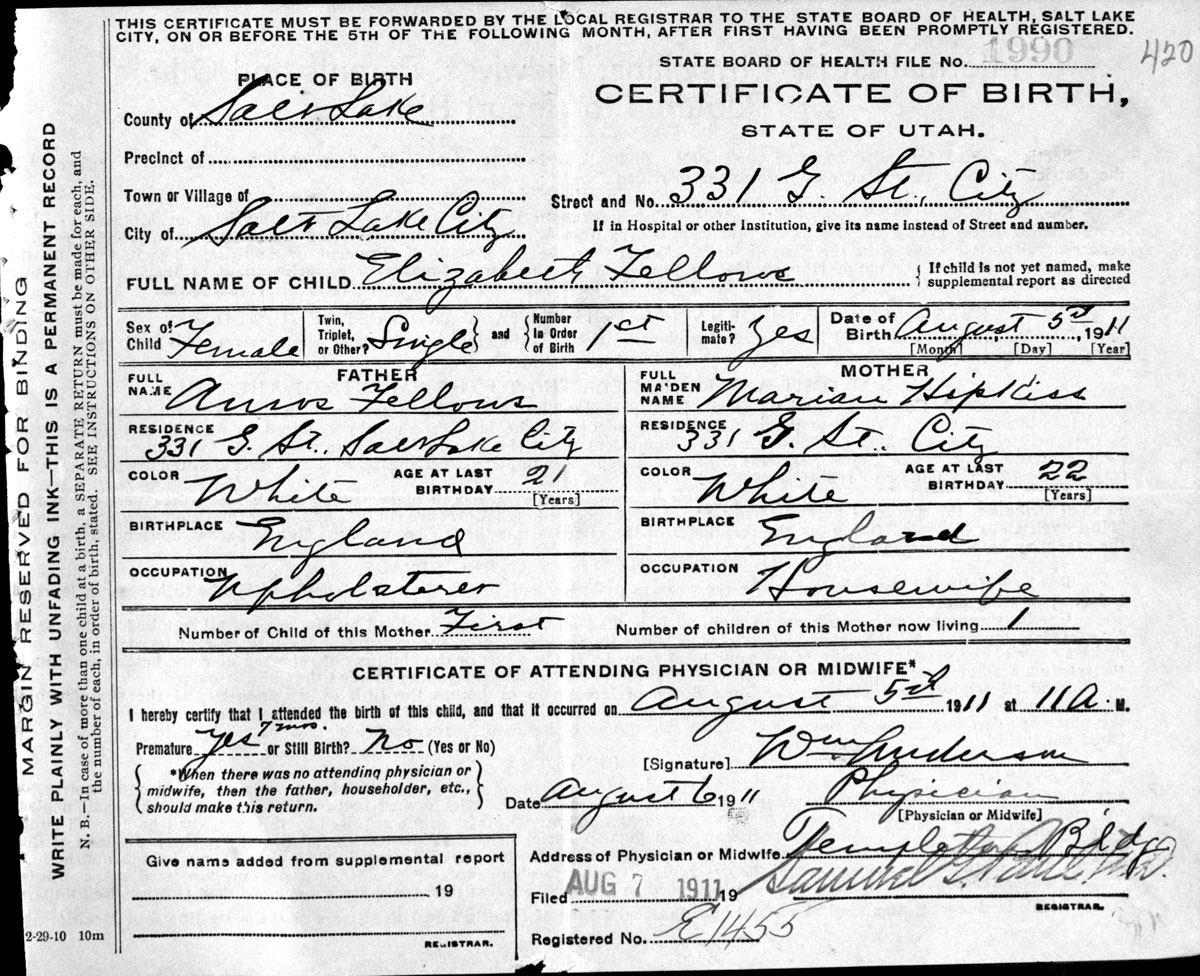 THIS CERTIFICATE MUST BE FORWARDED BY THE LOCAL REGISTRAR TO THE STATE BOARD OF HEALTH, SALT LAKE
CITY, ON OR BEFORE THE 5TH OF THE FOLLOWING MONTH, AFTER FIRST HAVING BEEN PROMPTLY REGISTERED.
420
STATE BOARD OF HEALTH FILE No. 1990
CERTIFICATE OF BIRTH,
STATE OF UTAH.
PLACE OF BIRTH
County of Salt Lake
Precinct of
Town or Village of
City of Salt Lake City
Street and No. 331 G. St., City
If in Hospital or other Institution, give its name instead of Street and number.
FULL NAME OF CHILD Elizabeth Fellows
{ If child is not yet named, make
supplemental report as directed
Sex of Child Female
Twin, Triplet, or Other? Single } and { Number In Order of Birth 1st
Legiti-mate? Yes
Date of Birth August 5th, 1911
[Month] [Day] [Year]
FATHER
FULL NAME Amos Fellows
RESIDENCE 331 G. St., Salt Lake City
COLOR White
AGE AT LAST BIRTHDAY 21
[Years]
BIRTHPLACE England
OCCUPATION Upholsterer
MOTHER
FULL MAIDEN NAME Marian Hipkiss
RESIDENCE 331 G. St., City
COLOR White
AGE AT LAST BIRTHDAY 22
[Years]
BIRTHPLACE England
OCCUPATION Housewife
Number of Child of this Mother First
Number of children of this Mother now living 1
CERTIFICATE OF ATTENDING PHYSICIAN OR MIDWIFE*
I hereby certify that I attended the birth of this child, and that it occurred on August 5th 1911 at 11 A. M.
7 mos.
Premature Yes or Still Birth? No (Yes or No)
{ *When there was no attending physician or
midwife, then the father, householder, etc.,
should make this return. }
[Signature] Wm Anderson
Date August 6 1911
Physician
[Physician or Midwife]
Address of Physician or Midwife Templeton Bldg
Give name added from supplemental report
19
REGISTRAR.
Filed AUG 7 1911 19
Samuel G.
REGISTRAR.
Registered No. E1455
2-29-10 10m
MARGIN RESERVED FOR BINDING
WRITE PLAINLY WITH UNFADING INK—THIS IS A PERMANENT RECORD
N. B.—In case of more than one child at a birth, a SEPARATE RETURN must be made for each, and
the number of each, in order of birth, stated. SEE INSTRUCTIONS ON OTHER SIDE.